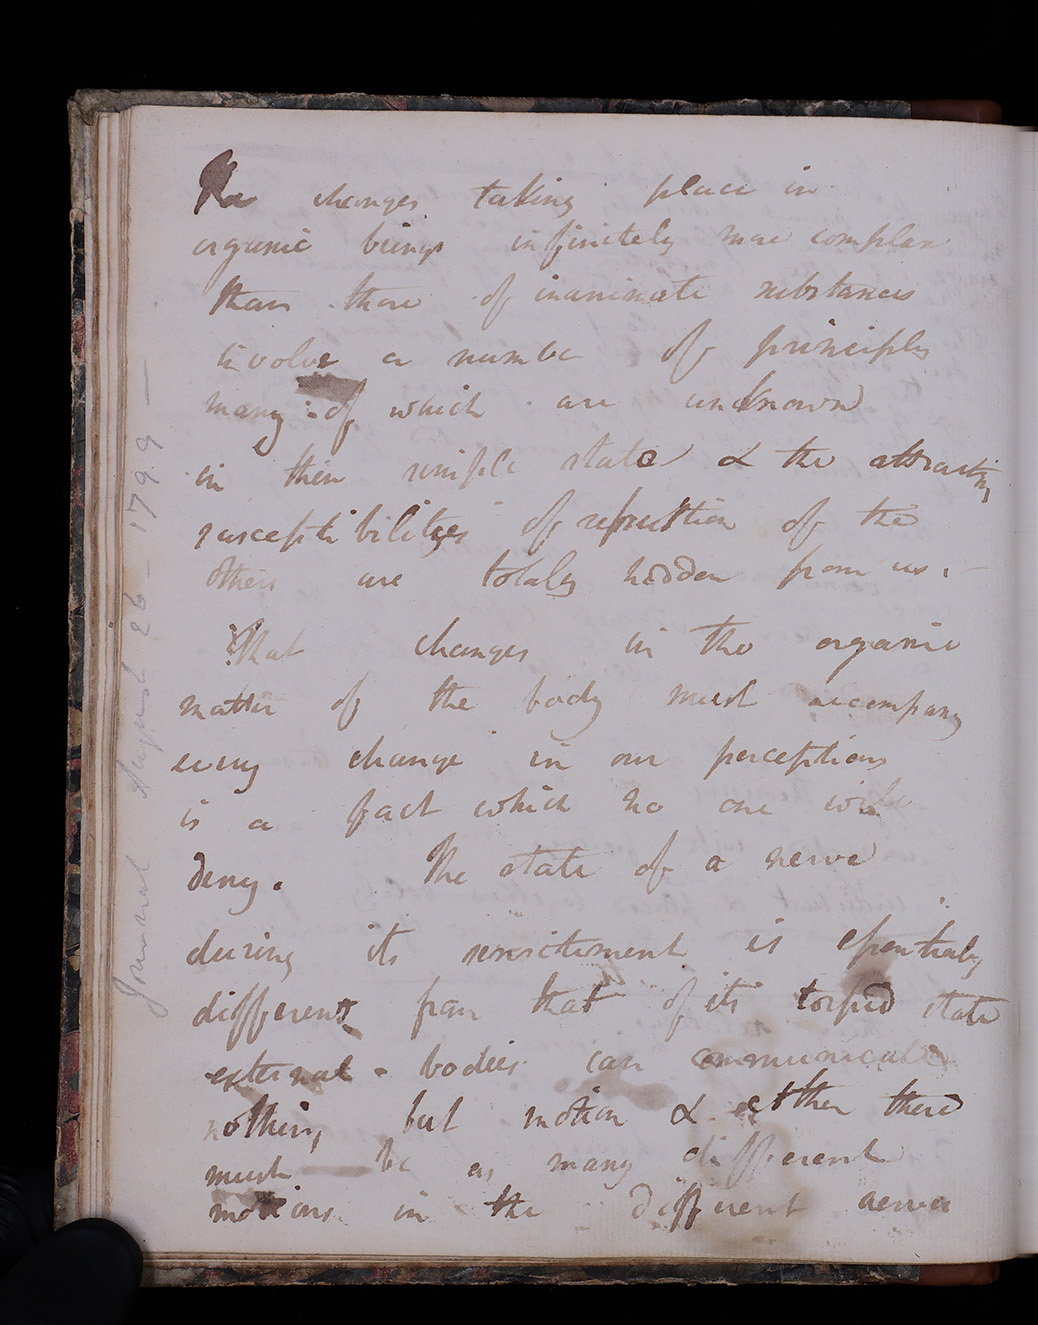 The changes taking place in
organic beings infinitely more complex
than those of inanimate substances
involve a number of principles
many of which are unknown
in their simple state & the attracting
susceptibilities of of the
others are totaly hidden from us. —
That changes in the organic
matter of the body must accompany
every change in our perceptions
is a fact which no one will
deny. The state of a nerve
during its is essentialy
different from that of its torpid state
external - bodies can communicate
nothing but motion & either there
must be as many different
motions in the different nerves
Journal August 26 - 1799 —